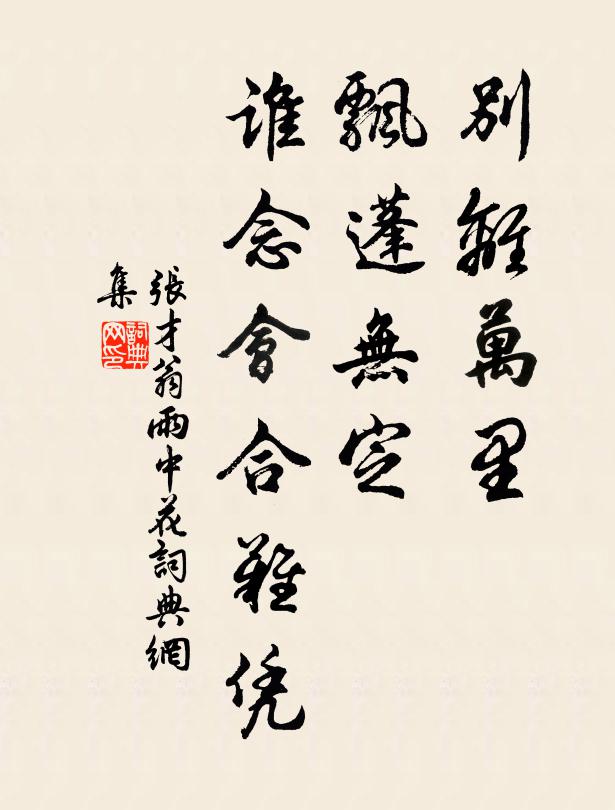 別離萬里
飄蓬無定
誰念會合難凭
張才翁雨中花詞典網
集
詞典網印